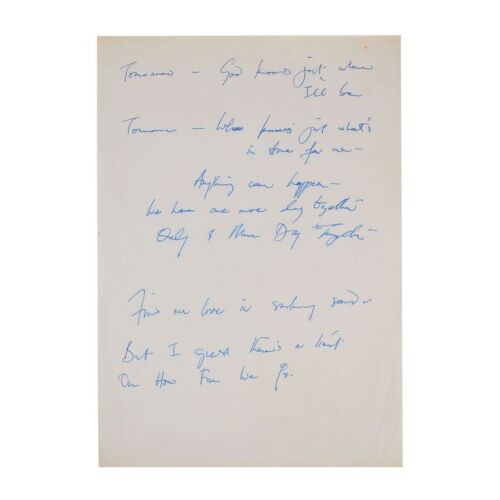 Tomorrow – God knows just where
I'll be
Tomorrow – Who knows just what's
in store for me –
Anything can happen –
we have one more day together
Only 1 More Day Together
our love in sinking sand
But I guess there's a limit
On How Far We Go.